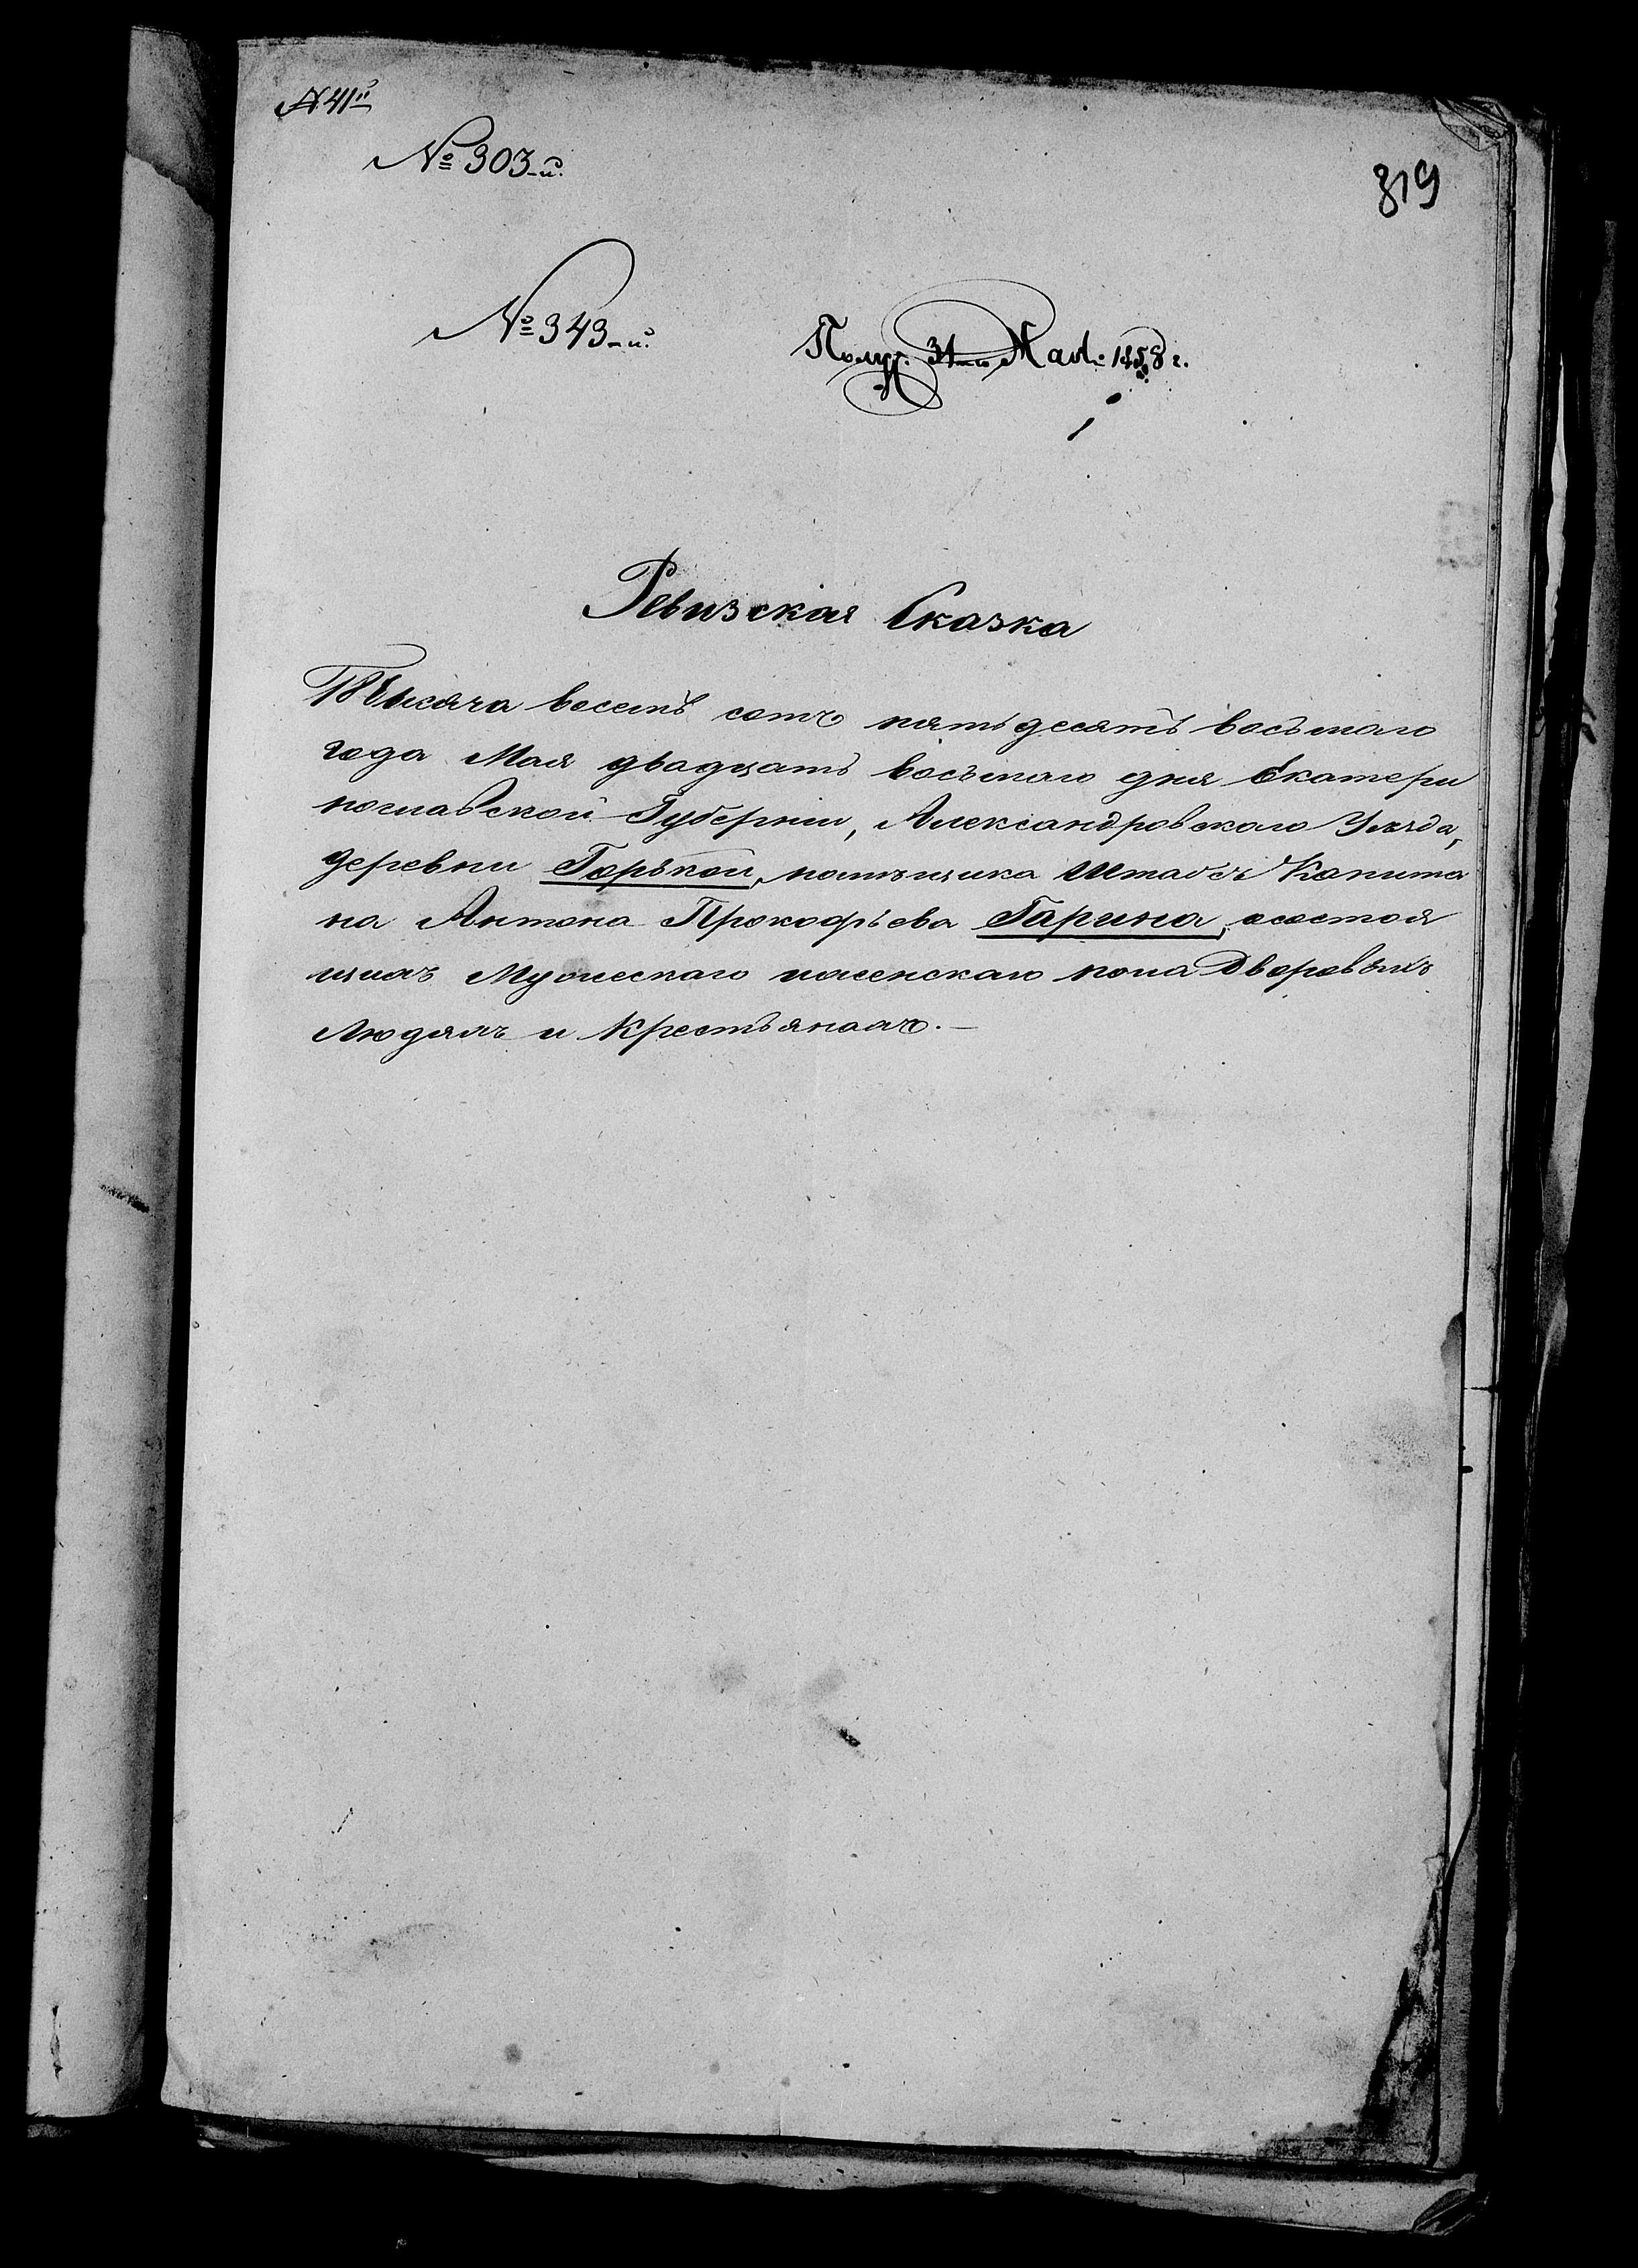 № 41й
№ 303-й.
319
№ 343-й.
Получ. 31-го Мая 1858 г.
Ревизская Сказка
Тысяча восемь сотъ пятьдесятъ восьмаго
года Мая двадцать восьмаго дня Екатери
нославской Губерніи, Александровскаго Уѣзда,
деревни Горькой, помѣщика Штабсъ Капита
на Антона Прокофьева Гарина, о состоя
щихъ Мужескаго и женскаго пола Дворовыхъ
Людяхъ и Крестьянахъ.—